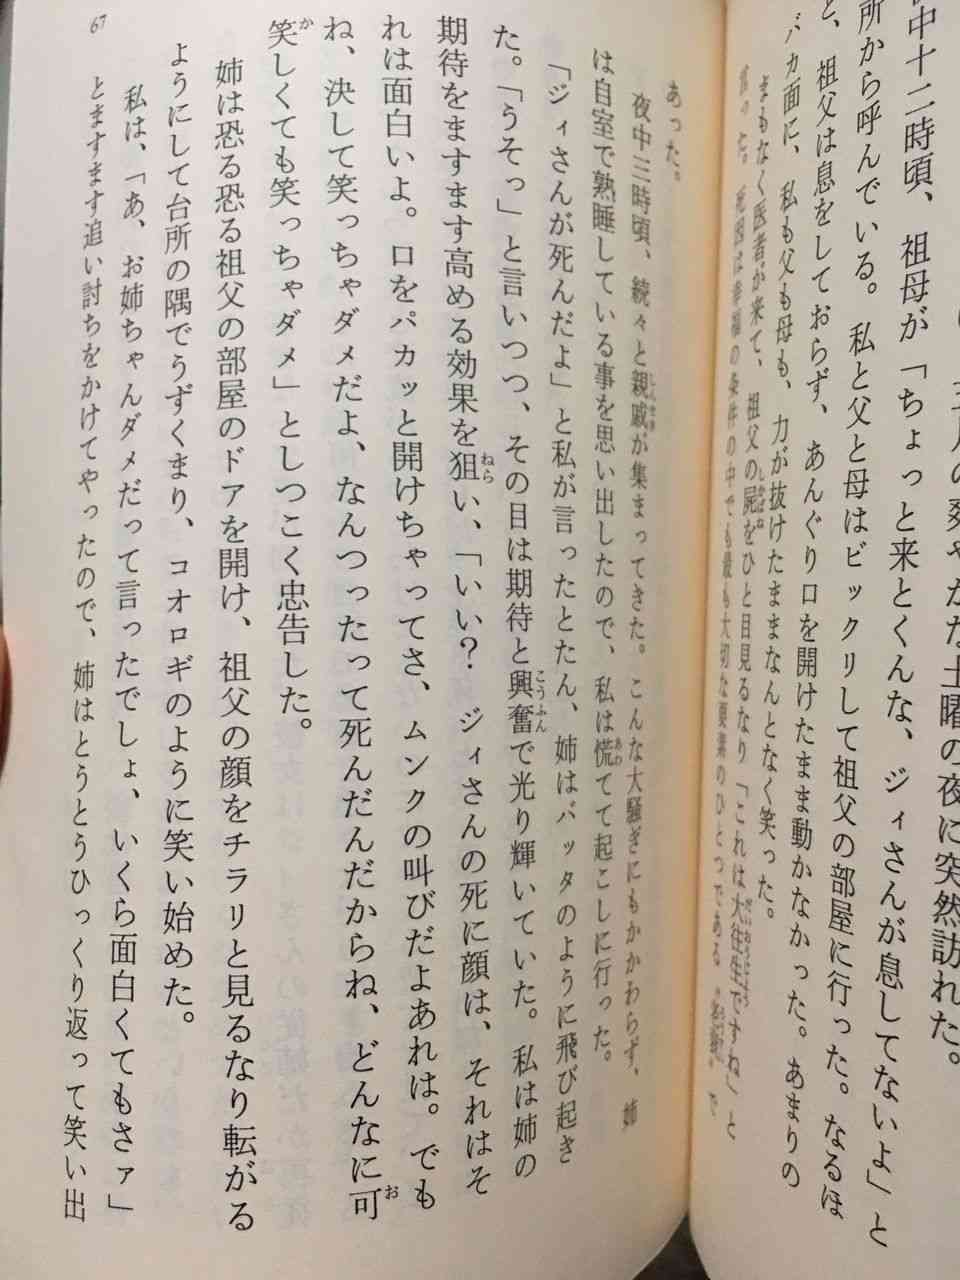 五月の爽やかな土曜の夜に突然訪れた。
夜中十二時頃、祖母が「ちょっと来とくんな、ジィさんが息してないよ」と
所から呼んでいる。私と父と母はビックリして祖父の部屋に行った。なるほ
ど、祖父は息をしておらず、あんぐり口を開けたまま動かなかった。あまりの
バカ面に、私も父も母も、力が抜けたままなんとなく笑った。
まもなく医者が来て、祖父の屍をひと目見るなり「これは大往生ですね」と
言った。死因は幸福の条件の中でも最も大切な要素のひとつである“老衰”で
あった。
夜中三時頃、続々と親戚が集まってきた。こんな大騒ぎにもかかわらず、姉
は自室で熟睡している事を思い出したので、私は慌てて起こしに行った。
「ジィさんが死んだよ」と私が言ったとたん、姉はバッタのように飛び起き
た。「うそっ」と言いつつ、その目は期待と興奮で光り輝いていた。私は姉の
期待をますます高める効果を狙い、「いい？ ジィさんの死に顔は、それはそ
れは面白いよ。口をパカッと開けちゃってさ、ムンクの叫びだよあれは。でも
ね、決して笑っちゃダメだよ、なんつったって死んだんだからね、どんなに可
笑しくても笑っちゃダメ」としつこく忠告した。
姉は恐る恐る祖父の部屋のドアを開け、祖父の顔をチラリと見るなり転がる
ようにして台所の隅でうずくまり、コオロギのように笑い始めた。
私は、「あ、お姉ちゃんダメだって言ったでしょ、いくら面白くてもさァ」
とますます追い討ちをかけてやったので、姉はとうとうひっくり返って笑い出
67